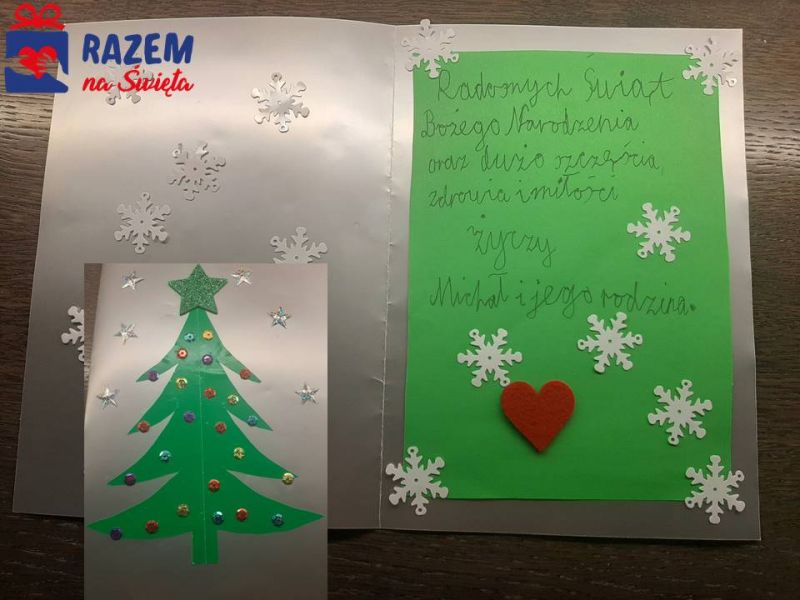 RAZEM
na Święta
Radosnych Świąt
Bożego Narodzenia
oraz dużo szczęścia,
zdrowia i miłości
życzy
Michał i jego rodzina.